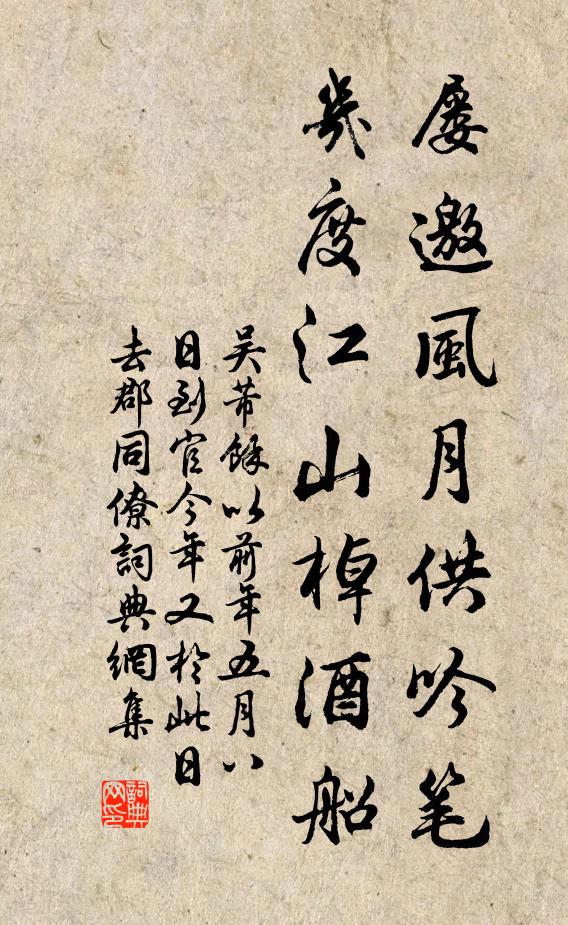 屡邀風月供吟笔
幾度江山棹酒船
吴芾餘以前年五月八
日到官今年又於此日
去郡同僚詞典網集
詞典网印